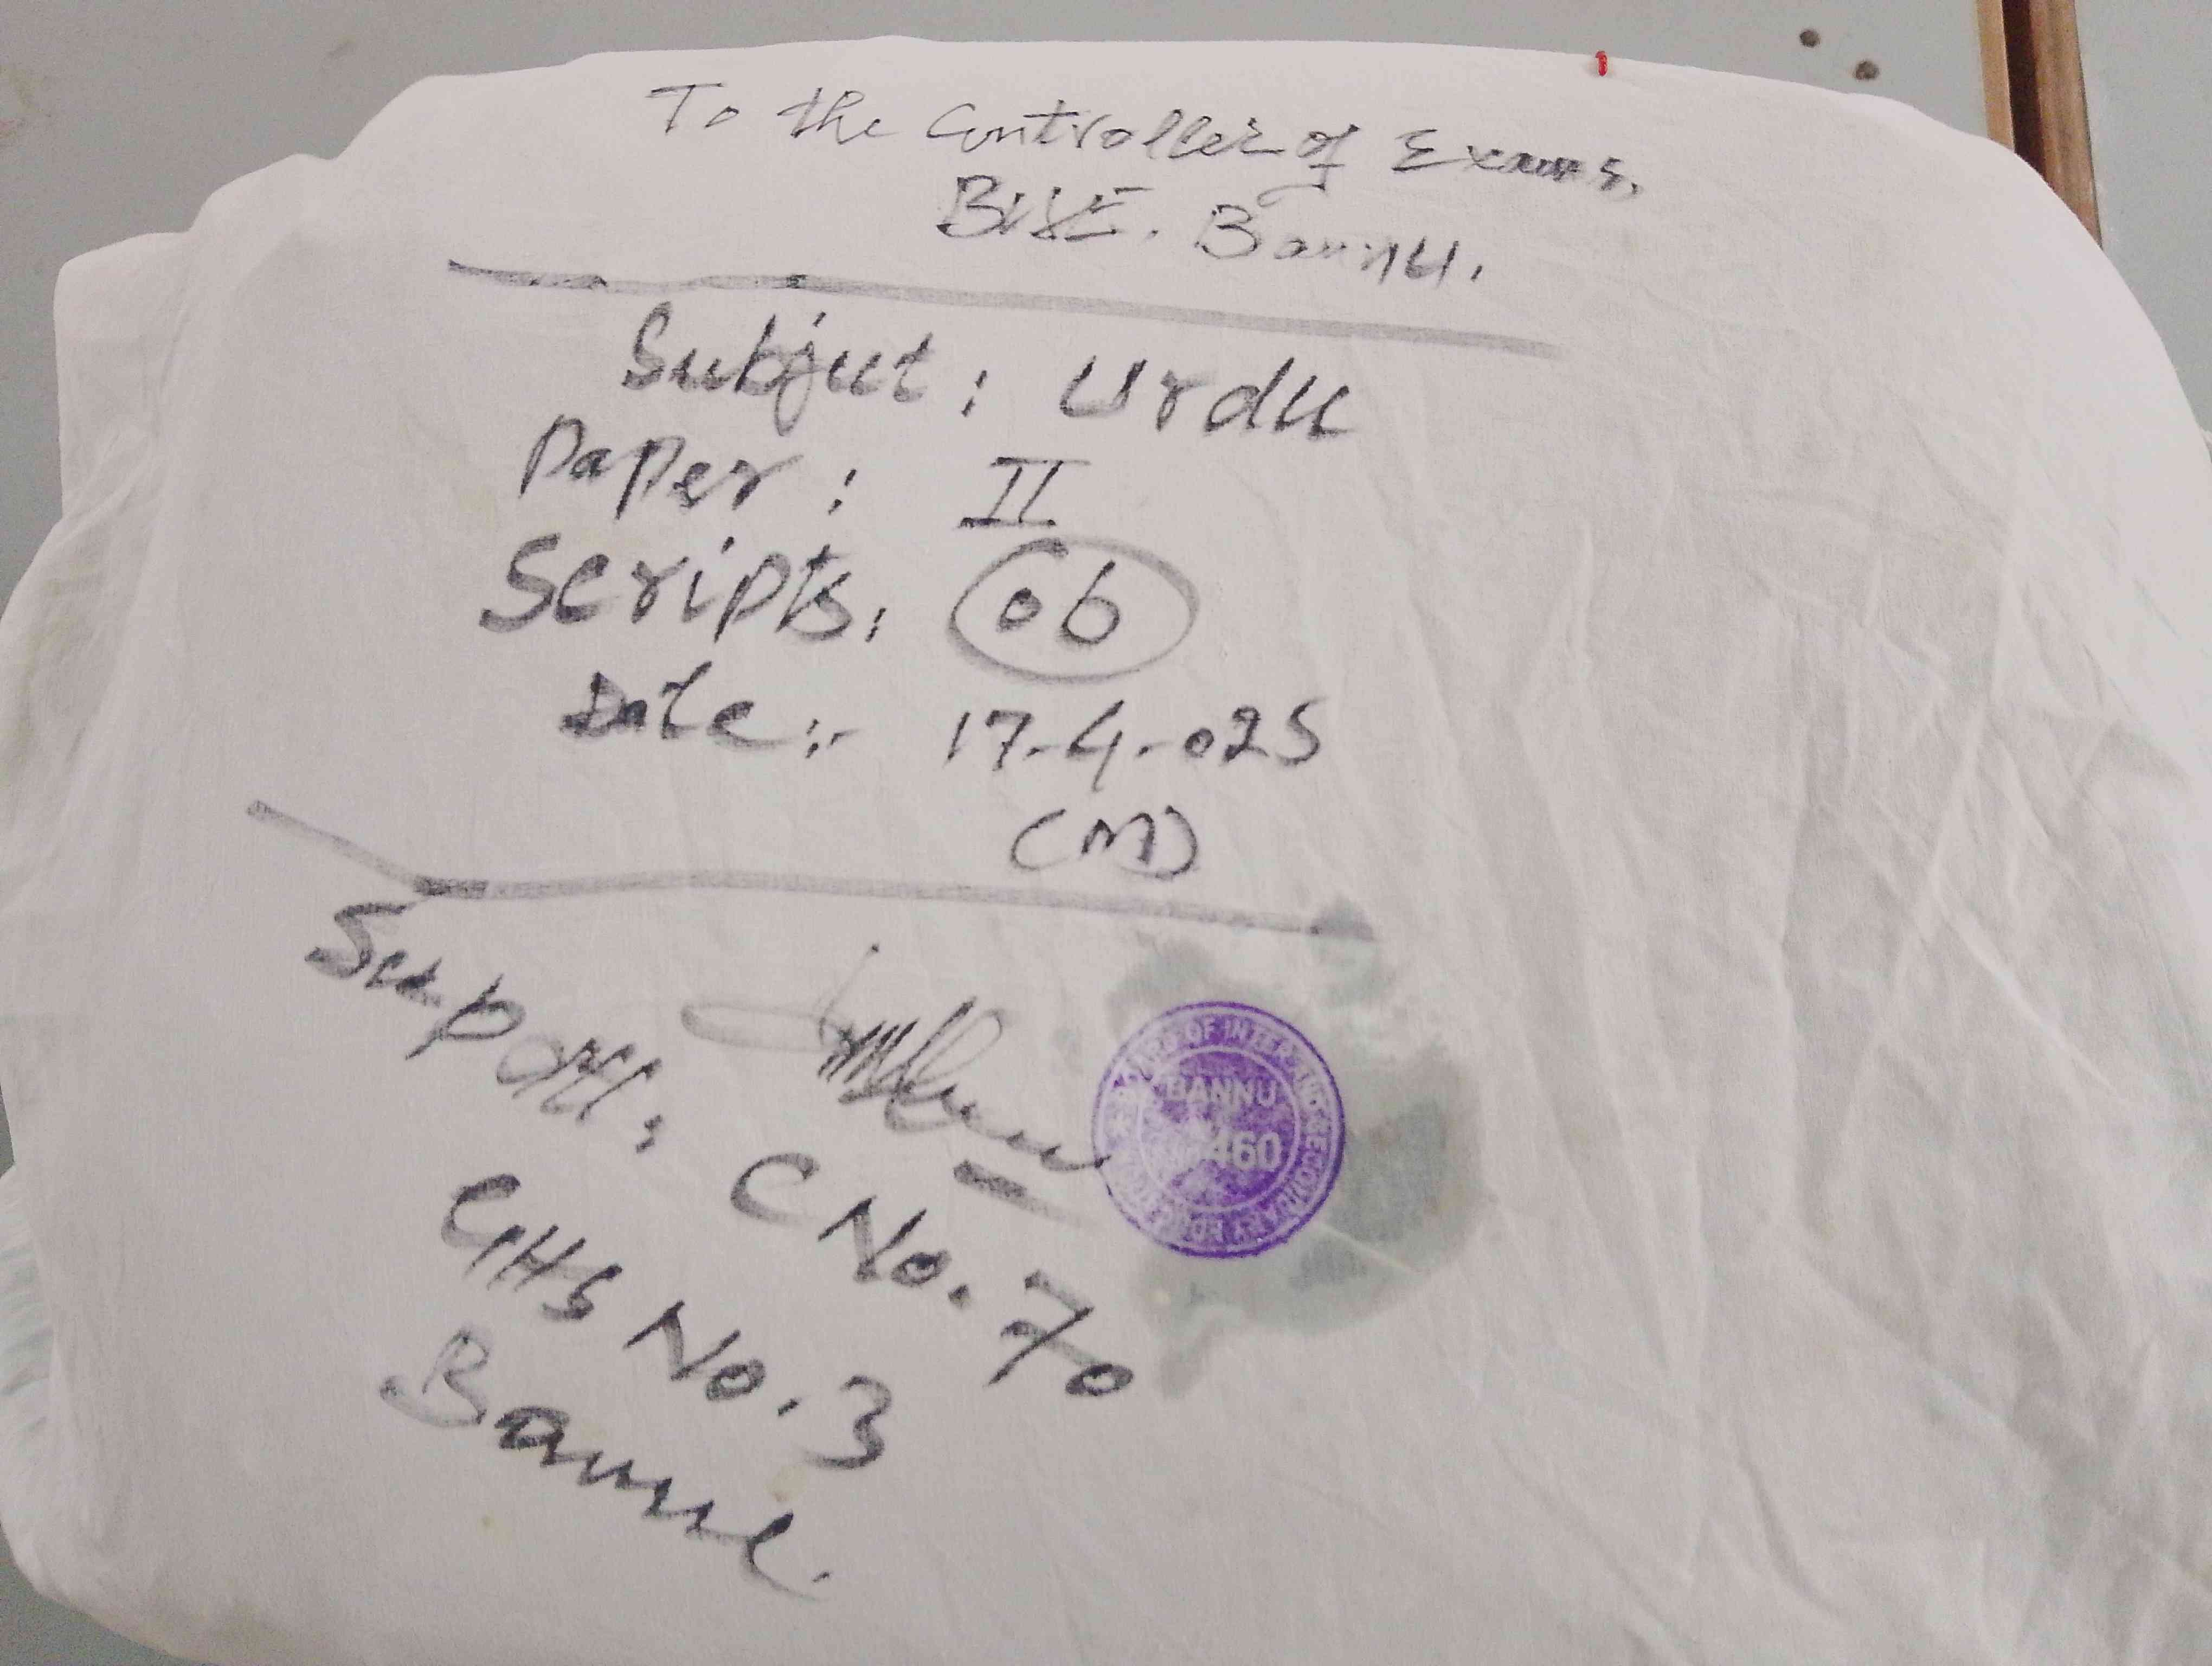 To the Controller of Exams,
BISE. Bannu.
Subject: Urdu
Paper: II
Scripts: 06
Date:- 17-4-025
(M)
C No. 70
GHS No. 3
Bannu.
BANNU
460